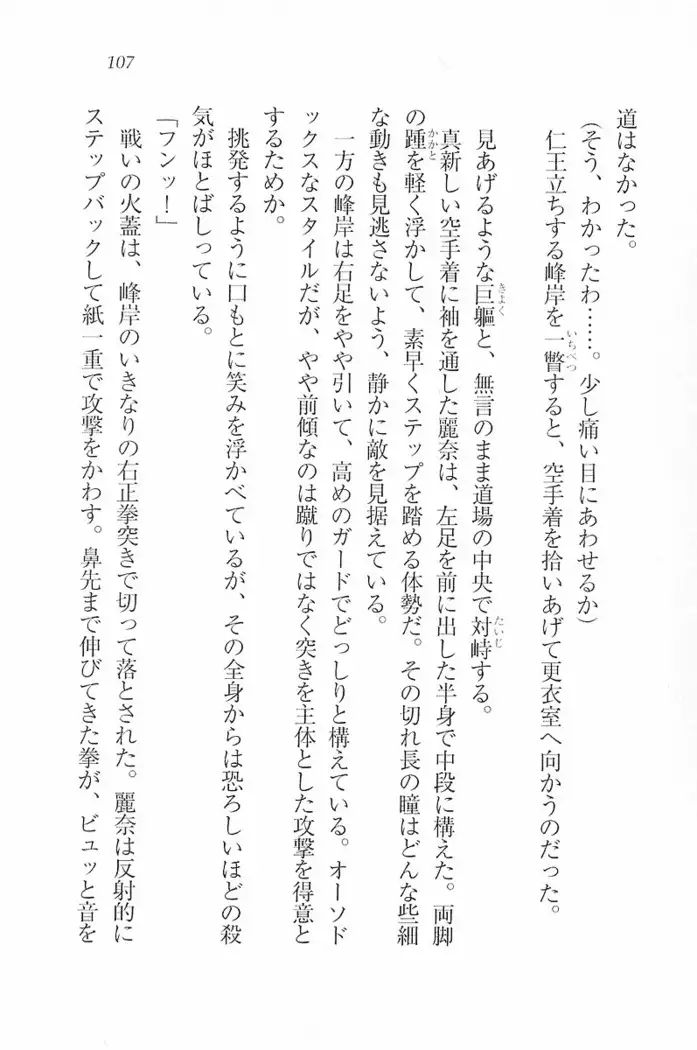 107
道はなかった。
(そう、わかったわ……。少し痛い目にあわせるか)
仁王立ちする峰岸を一瞥すると、空手着を拾いあげて更衣室へ向かうのだった。
いちべつ
見あげるような巨軀と、無言のまま道場の中央で対峙する。
きょく
たいじ
真新しい空手着に袖を通した麗奈は、左足を前に出した半身で中段に構えた。両脚
の踵を軽く浮かして、素早くステップを踏める体勢だ。その切れ長の瞳はどんな些細
かかと
な動きも見逃さないよう、静かに敵を見据えている。
一方の峰岸は右足をやや引いて、高めのガードでどっしりと構えている。オーソド
ックスなスタイルだが、やや前傾なのは蹴りではなく突きを主体とした攻撃を得意と
するためか。
挑発するように口もとに笑みを浮かべているが、その全身からは恐ろしいほどの殺
気がほとばしっている。
「フンッ!」
戦いの火蓋は、峰岸のいきなりの右正拳突きで切って落とされた。麗奈は反射的に
ステップバックして紙一重で攻撃をかわす。鼻先まで伸びてきた拳が、ビュッと音を